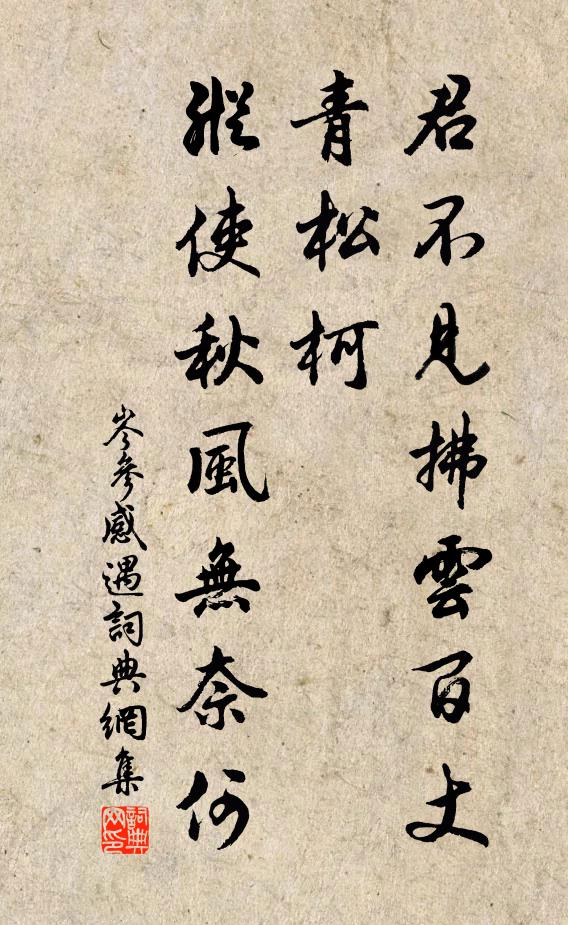 君不見拂雲百丈
青松柯
縱使秋風無奈何
岑參感遇詞典網集
詞典
网印